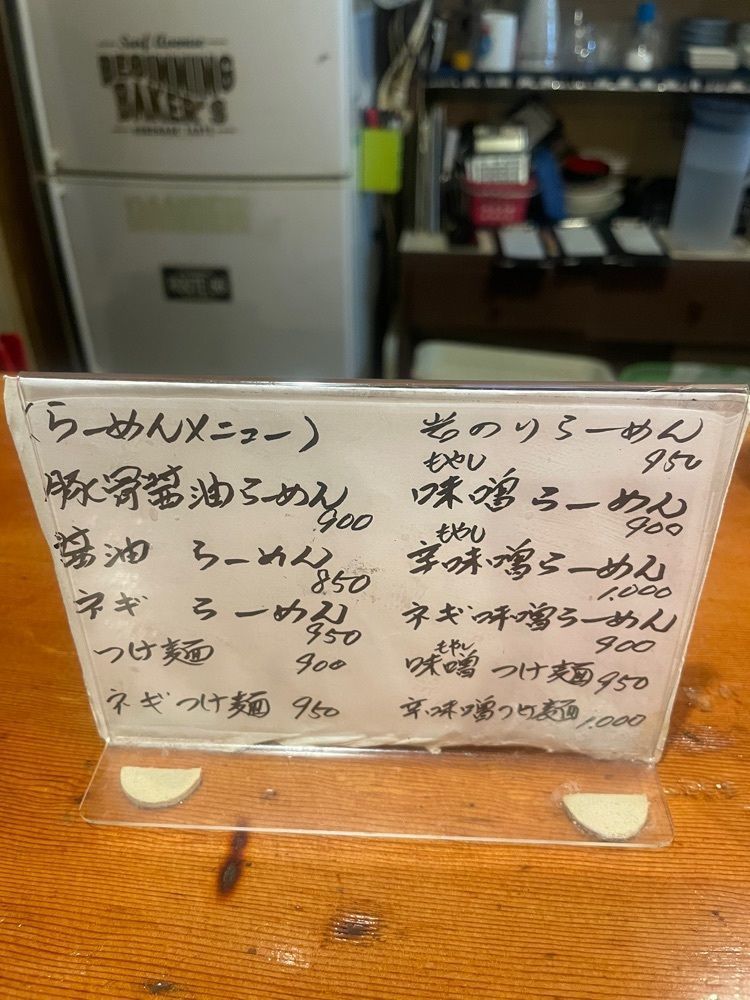 BEGINNING
BAKER'S
(らーめんメニュー)
豚骨醤油らーめん
900
醤油 らーめん
850
ネギ らーめん
950
つけ麺 900
ネギつけ麺 950
岩のりらーめん
950
もやし
味噌らーめん
900
もやし
辛味噌らーめん
1.000
ネギ味噌らーめん
900
もやし
味噌 つけ麺 950
辛味噌つけ麺 1.000